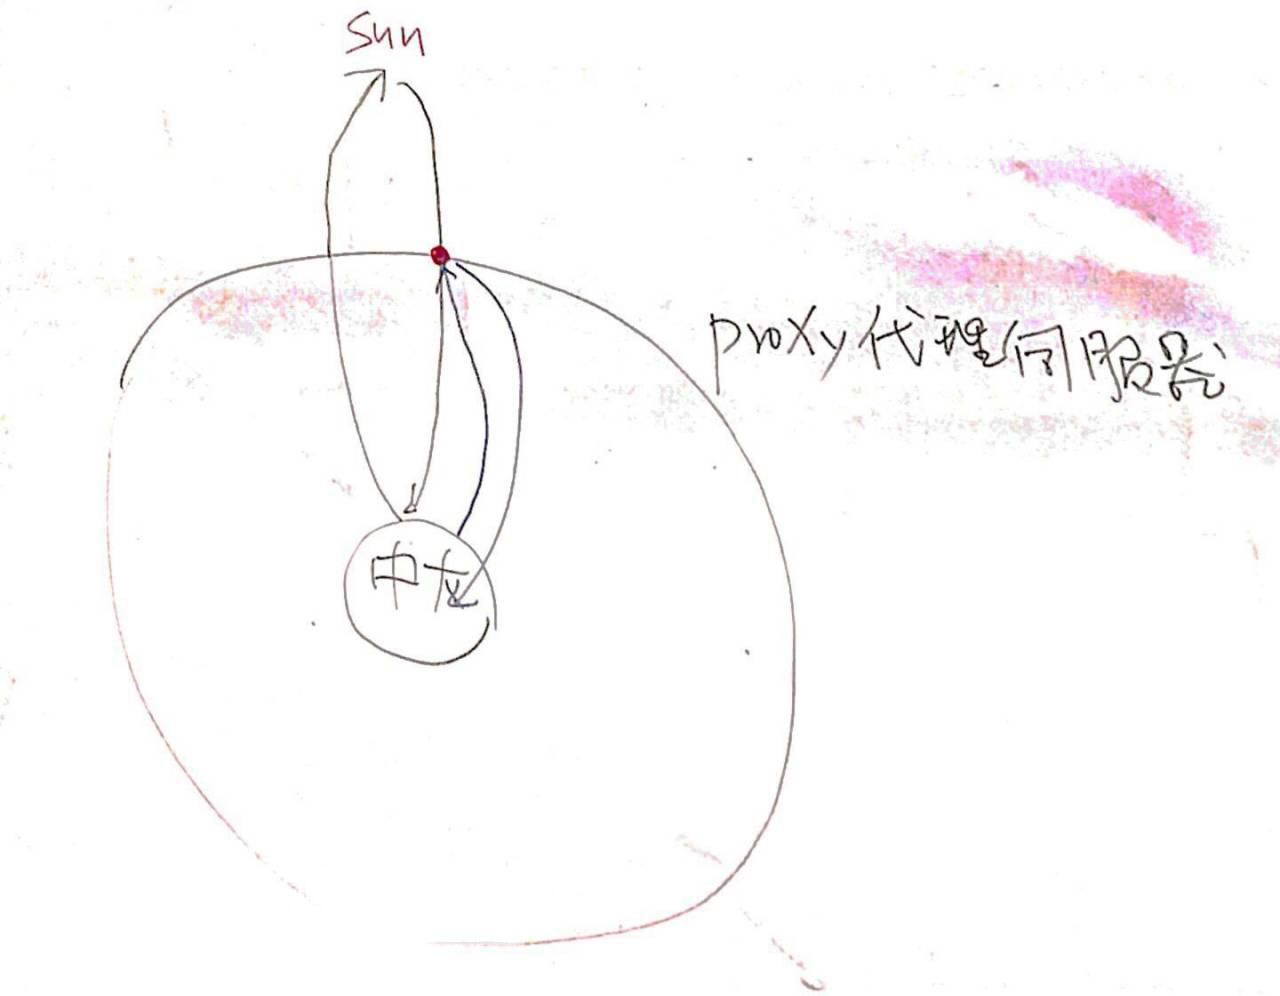 Sun
proxy代理伺服器
中友